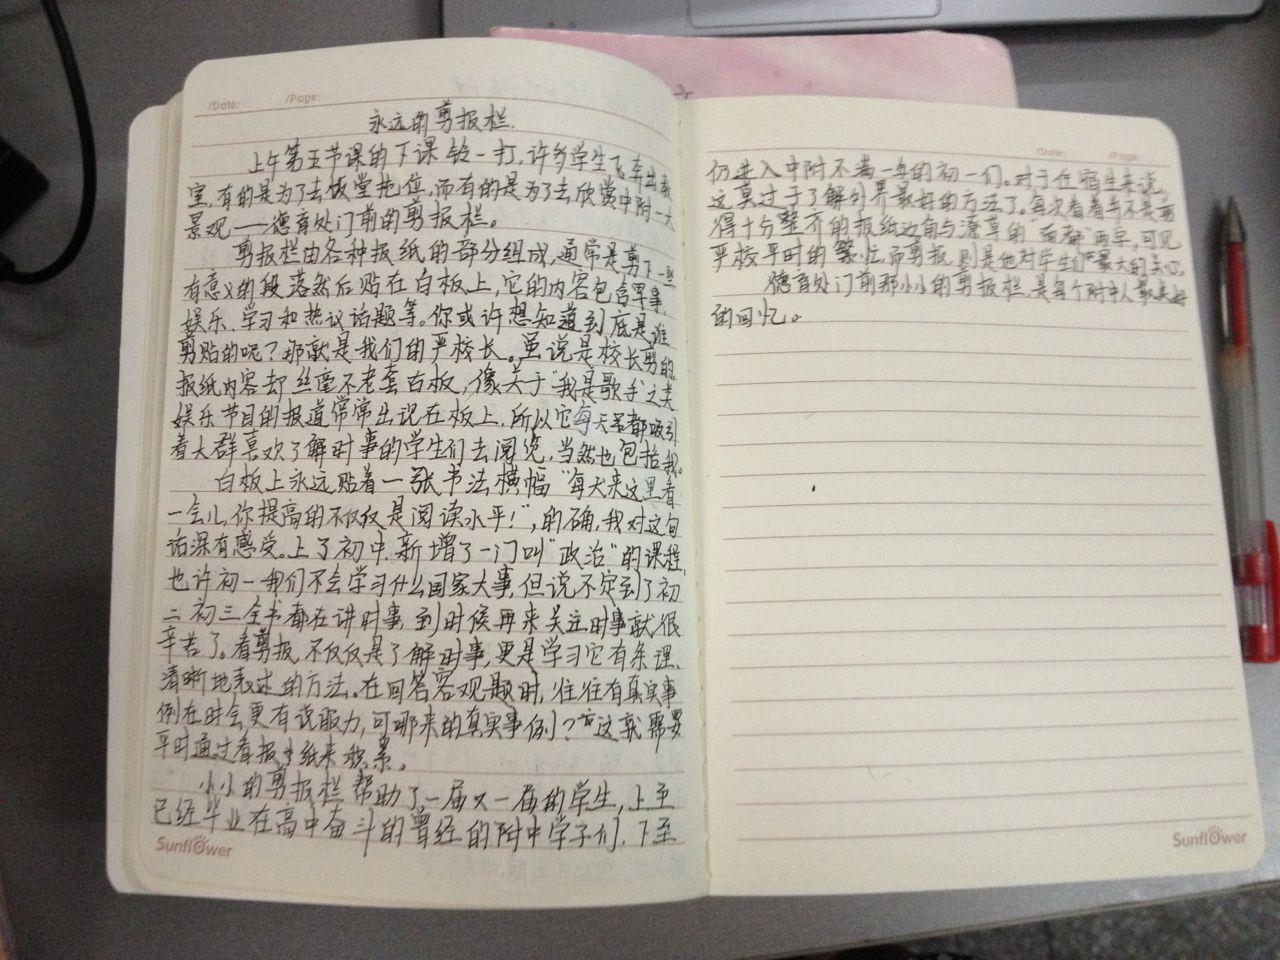 /Date: /Page:
永远的剪报栏.
上午第五节课的下课铃一打,许多学生飞奔出教
室,有的是为了去饭堂抢位,而有的是为了去欣赏中附一大
景观——德育处门前的剪报栏。
剪报栏由各种报纸的部分组成,通常是剪下一些
有意义的段落然后贴在白板上,它的内容包含军事、
娱乐、学习和热议话题等。你或许想知道到底是谁
剪贴的呢?那就是我们的严校长。虽说是校长剪的,
报纸内容却丝毫不老套古板,像关于“我是歌手”之类
娱乐节目的报道常常出现在板上,所以它每天都吸引
着大群喜欢了解时事的学生们去阅览,当然也包括我。
白板上永远贴着一张书法横幅“每天来这里看
一会儿,你提高的不仅仅是阅读水平!”,的确,我对这句
话深有感受。上了初中,新增了一门叫“政治”的课程,
也许初一我们不会学习什么国家大事,但说不定到了初
二初三全书都在讲时事,到时候再来关注时事就很
辛苦了。看剪报,不仅仅是了解时事,更是学习它有条理、
清晰地表述的方法。在回答客观题时,往往有真实事
例在时会更有说服力,可哪来的真实事例?这就需要
平时通过看报纸来积累。
小小的剪报栏帮助了一届又一届的学生,上至
已经毕业在高中奋斗的曾经的附中学子们,下至
Sunflower
/Date: /Page:
仍进入中附不满一年的初一们。对于住宿生来说,
这莫过于了解外界最好的方法了。每次看着并不是剪
得十分整齐的报纸边角与潦草的“ ”两字,可见
严校平时的繁忙,而剪报则是他对学生们最大的关心。
德育处门前那小小的剪报栏,是每个附中人最美好
的回忆。
Sunflower